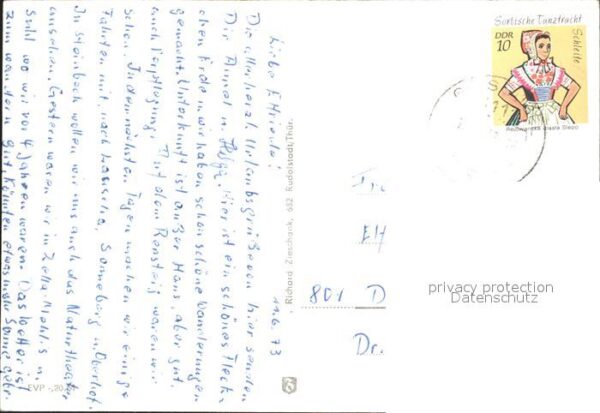 11.6.73
Liebe E Hirode!
Die allerherzl. Urlaubsgrüße von hier senden
Dir Annel u. Helga. Hier ist ein schönes Fleck-
chen Erde u. wir haben schon schöne Wanderungen
gemacht. Unterkunft ist außer Haus, aber gut.
auch Verpflegung. Auf dem Rensteig waren wir
schon. In den nächsten Tagen machen wir einige
Fahrten mit, nach Lauscha, Sonneberg u. Oberhof.
In Steinbach wollen wir uns auch das Naturtheater
ansehen. Gestern waren wir in Zella-Mehlis u.
Suhl wo wir vor 4 Jahren waren. Das Wetter ist
zum wandern gut, könnten etwas mehr Sonne gebr.
EVP -,20
Richard Zieschank, 682 Rudolstadt/Thür.
Sorbische Tanztracht
Schleife
DDR
10
Rejowanska drasta Slepo
801 D
Dr.
privacy protection
Datenschutz